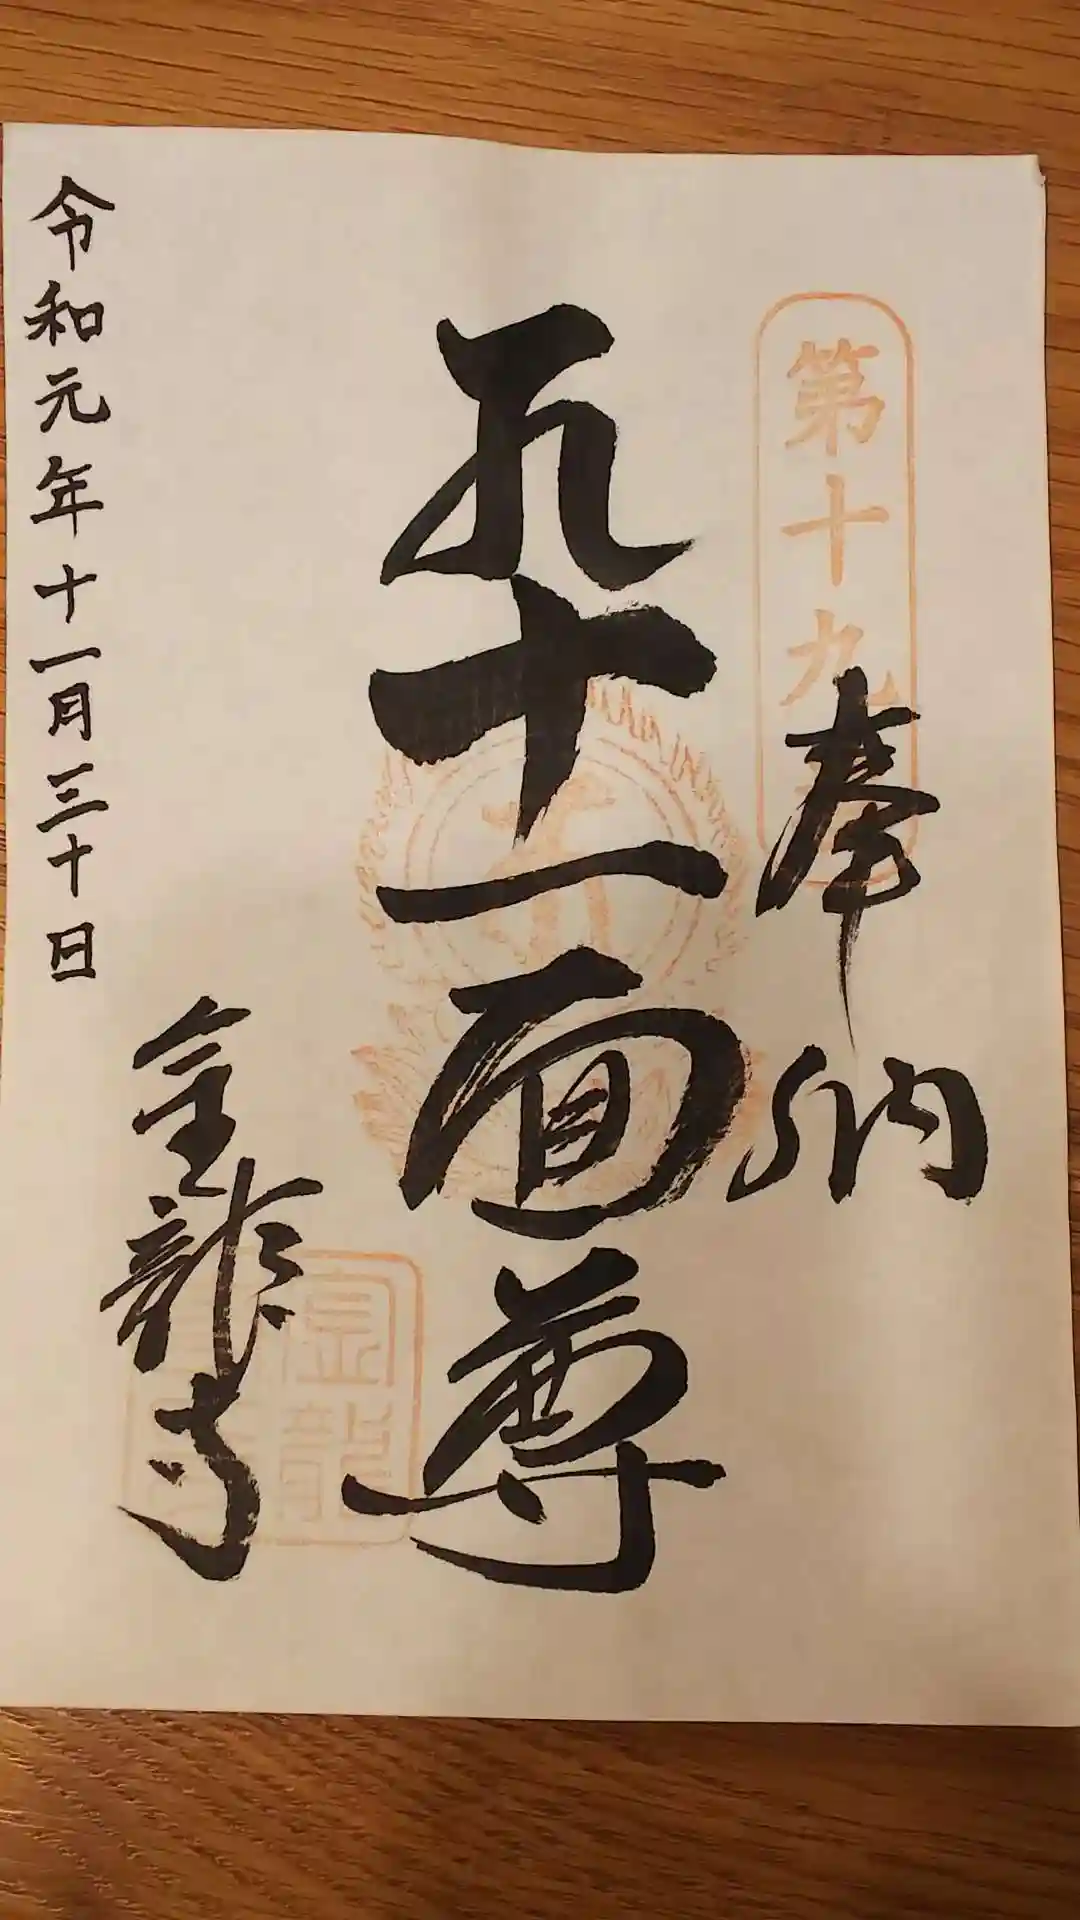 第十九
奉納
十一面尊
金龍
金龍寺
令和元年十一月三十日